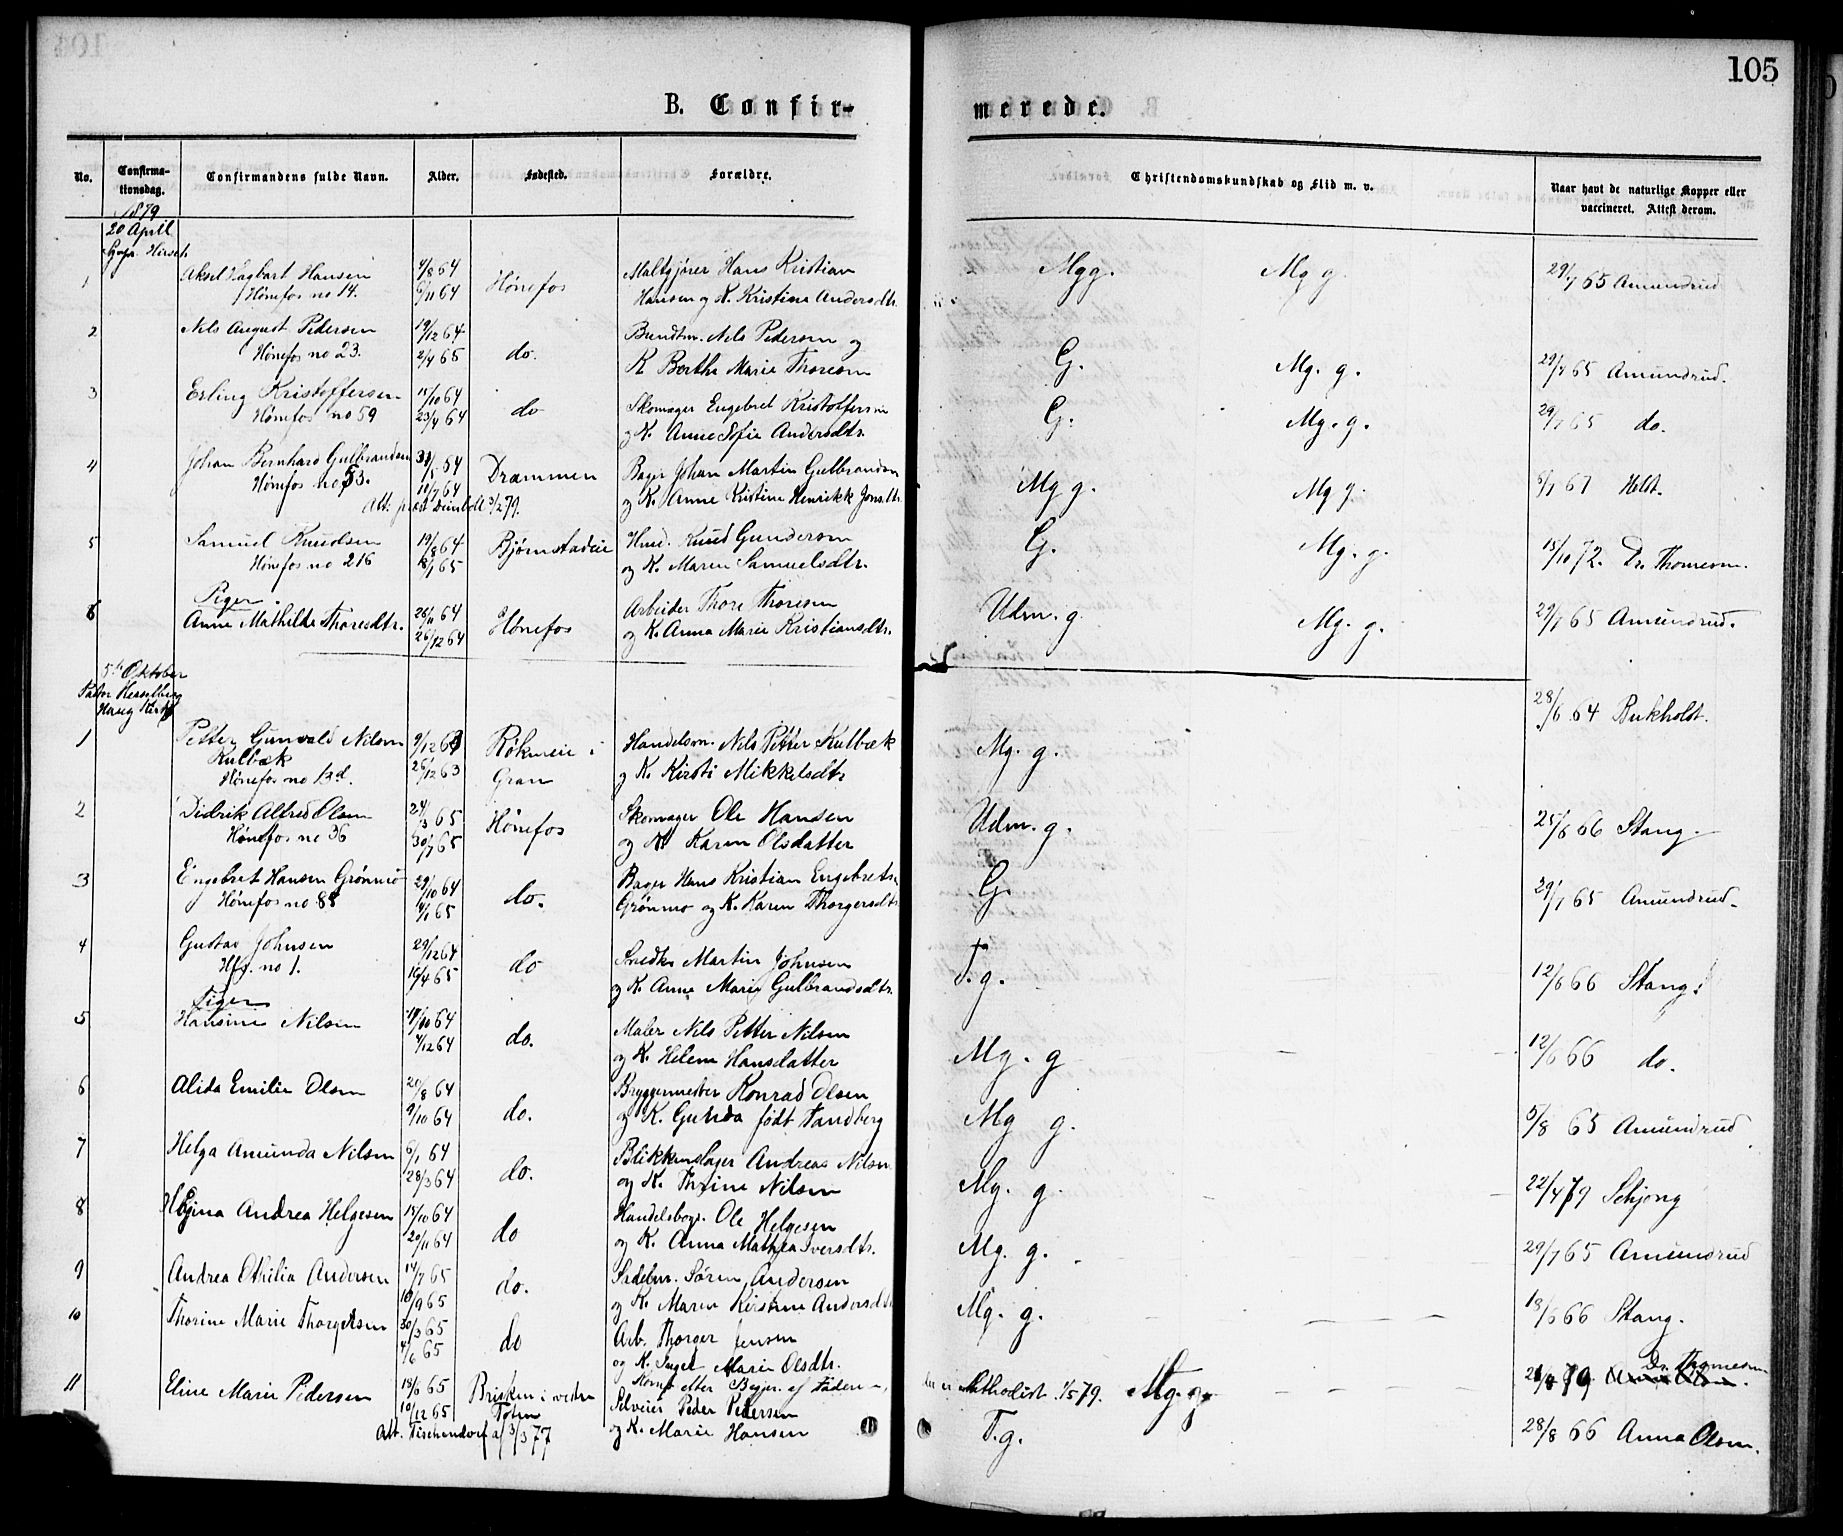 105
B. Confir-
merede.
No.
Confirma-
tionsdag.
Confirmandens fulde Navn.
Alder.
Fødested.
Forældre.
Christendomskundskab og Flid m. v.
Naar havt de naturlige Kopper eller
vaccineret. Attest derom.
1879
20 April
Hirsch
1 Aksel Hagbart Hansen 4/8 64 Hønefos Maltgjører Hans Kristian Mg g. Mg g. 29/7 65 Amundrud
Hønefos no 14. 6/11 64 Hansen og K. Kristina Andersdtr.
2 Nils August Pedersen 19/12 64 do. Bundtm. Nils Pedersen og G. Mg. g. 29/7 65 Amundrud.
Hønefos no 23. 2/4 65 K Berthe Marie Thoresen
3 Erling Kristoffersen 15/10 64 do Skomager Engebret Kristoffersen G. Mg. g. 29/7 65 do.
Hønefos no 59 23/4 64 og K. Anne Sofie Andersdtr.
4 Johan Bernhard Gulbrandsen 31/5 64 Drammen Bager Johan Martin Gulbrandsen Mg g. Mg g. 6/7 67 Holst.
Hønefos no 53. 10/7 64 og K. Anne Kristine Henrikk Jonsdtr.
Att. 3/2 79.
5 Samuel Knudsen 19/8 64 Bjørnstadeie Hmd. Knud Gundersen G. Mg. g. 15/10 72. Dr. Thomesen.
Hønefos no 216 8/1 65 og K. Maren Samuelsdtr.
Piger
6 Anne Mathilde Thoresdtr. 26/11 64 Hønefos Arbeider Thore Thoresen Udm. g. Mg. g. 29/7 65 Amundrud.
26/12 64 og K. Anna Marie Kristiansdtr.
5te Oktober
Pastor Hesselberg
Haug Kirke
1 Petter Gunvald Nilsen 9/12 63 Røkeneie i Handelsm. Nils Petter Kulbæk Mg. g. 28/6 64 Bukholdt.
Kulbæk 26/12 63 Gran og K. Kirsti Mikkelsdtr
Hønefos no 1
2 Didrik Alfred Olsen 24/3 65 Hønefos Skomager Ole Hansen Udm. g. 25/6 66 Stang.
Hønefos no 36 30/7 65 og K Karen Olsdatter
3 Engebret Hansen Grønmo 29/10 64 do. Bager Hans Kristian Engebrets. G. 29/7 65 Amundrud.
Hønefos no 88 4/1 65 Grønmo og K. Karen Thorgersdtr
4 Gustav Johnsen 29/12 64 do Snedker Martin Johnsen T. g. 12/6 66 Stang.
Hfs. no 1. 16/4 65 og K. Anne Marie Gulbrandsdtr.
Piger
5 Hansine Nilsen 18/10 64 do. Maler Nils Petter Nilsen Mg. g 12/6 66 do.
4/12 64 og K. Helene Hansdatter
6 Alida Emilie Olsen 20/8 64 do. Bryggermester Konrad Olsen Mg g. 5/8 65 Amundrud
9/10 64 og K. Gunda født Tandberg
7 Helga Amunda Nilsen 6/1 64 do. Blikkenslager Andreas Nilsen Mg. g. 22/4 79 Schjong
28/3 64 og K. Thrine Nilsen
8 Hegina Andrea Helgesen 15/10 64 do Handelsbogr. Ole Helgesen Mg. g. 29/7 65 Amundrud
20/11 64 og K. Anna Mathea Iversdtr.
9 Andrea Othilia Andersen 14/7 65 do. Sadelm. Søren Andersen Mg. g. 18/6 66 Stang.
10/9 65 og K. Maren Kirstine Andersdtr
10 Thorine Marie Thorgersen 30/3 65 do Arb. Thorger Jensen Mg. g. 21/4 79 Dr. Thomesen
4/6 65 og K. Inger Marie Olsdtr.
Konf. efter Begjær. af Faderen, der er Methodist 1/5 79.
11 Eline Marie Pedersen 18/6 65 Brisken i vestre Selveier Peder Pedersen T. g. 28/8 66 Anna Olsen.
10/12 65 Toten og K. Marie Hansen
Att. Tischendorf af 3/3 77